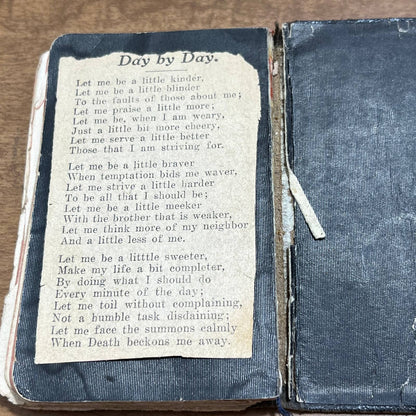 Day by Day.
Let me be a little kinder,
Let me be a little blinder
To the faults of those about me;
Let me praise a little more;
Let me be, when I am weary,
Just a little bit more cheery,
Let me serve a little better
Those that I am striving for.
Let me be a little braver
When temptation bids me waver,
Let me strive a little harder
To be all that I should be;
Let me be a little meeker
With the brother that is weaker,
Let me think more of my neighbor
And a little less of me.
Let me be a little sweeter,
Make my life a bit completer,
By doing what I should do
Every minute of the day;
Let me toil without complaining,
Not a humble task disdaining;
Let me face the summons calmly
When Death beckons me away.